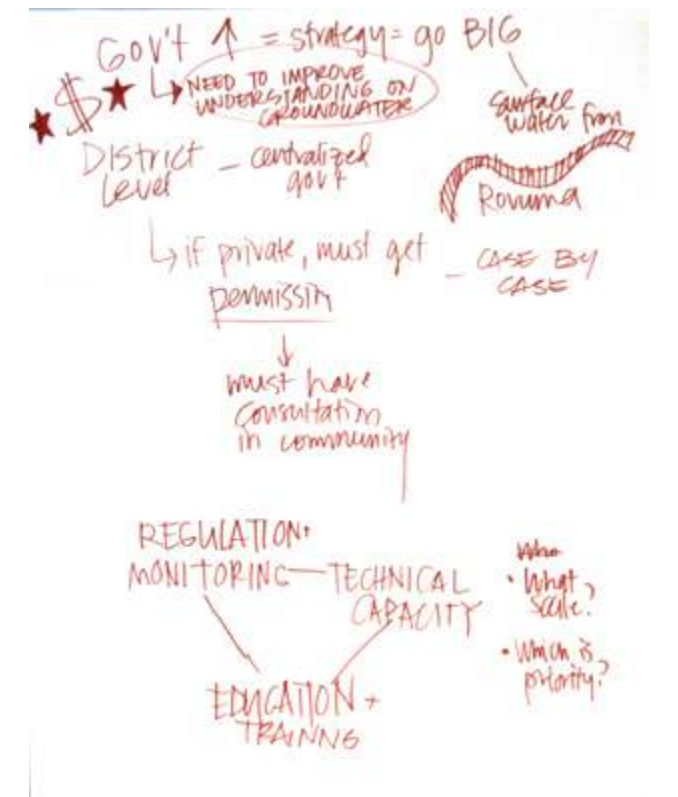 GOV't ↑ = strategy = go BIG
$ ↳ NEED TO IMPROVE
UNDERSTANDING ON
GROUNDWATER
surface
water from
Rovuma
District
Level – centralized
gov't
↳ if private, must get
permissin – CASE BY
CASE
↓
must have
consultatin
in community
REGULATION +
MONITORING — TECHNICAL
CAPACITY
EDUCATION +
TRAINNG
Who
• What
scale?
• Which is
priority?